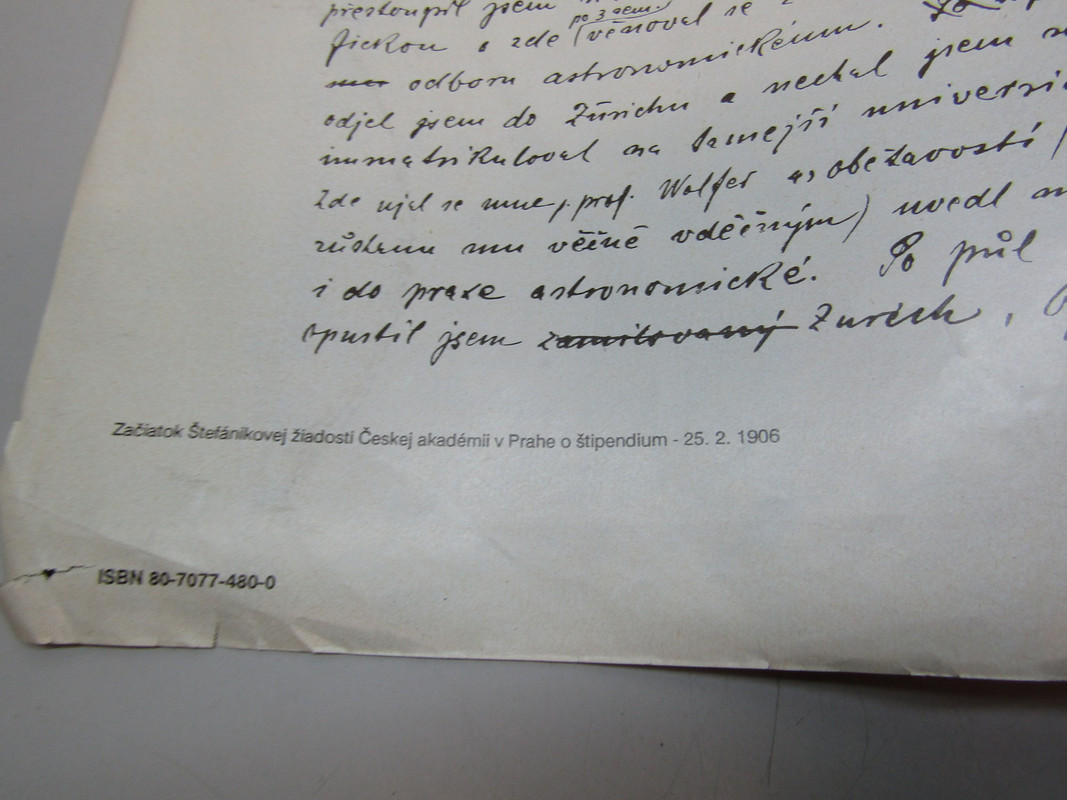 přestoupil jsem
po 3 sem.
fickou a zde (věnoval se
odboru astronomickému.
odjel jsem do Zürichu a nechal jsem
immatrikuloval na tamejší
Zde ujal se mne p. prof. Wolfer obětavostí
zůstanu mu věčně vděčným) uvedl
i do praxe astronomické. Po půl
opustil jsem zamilovaný Zurich,
Začiatok Štefánikovej žiadosti Českej akadémii v Prahe o štipendium - 25. 2. 1906
ISBN 80-7077-480-0